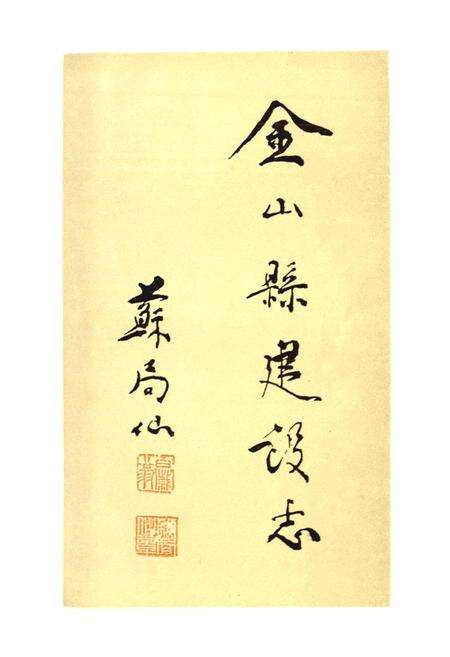 金山縣建設志
蘇局仙